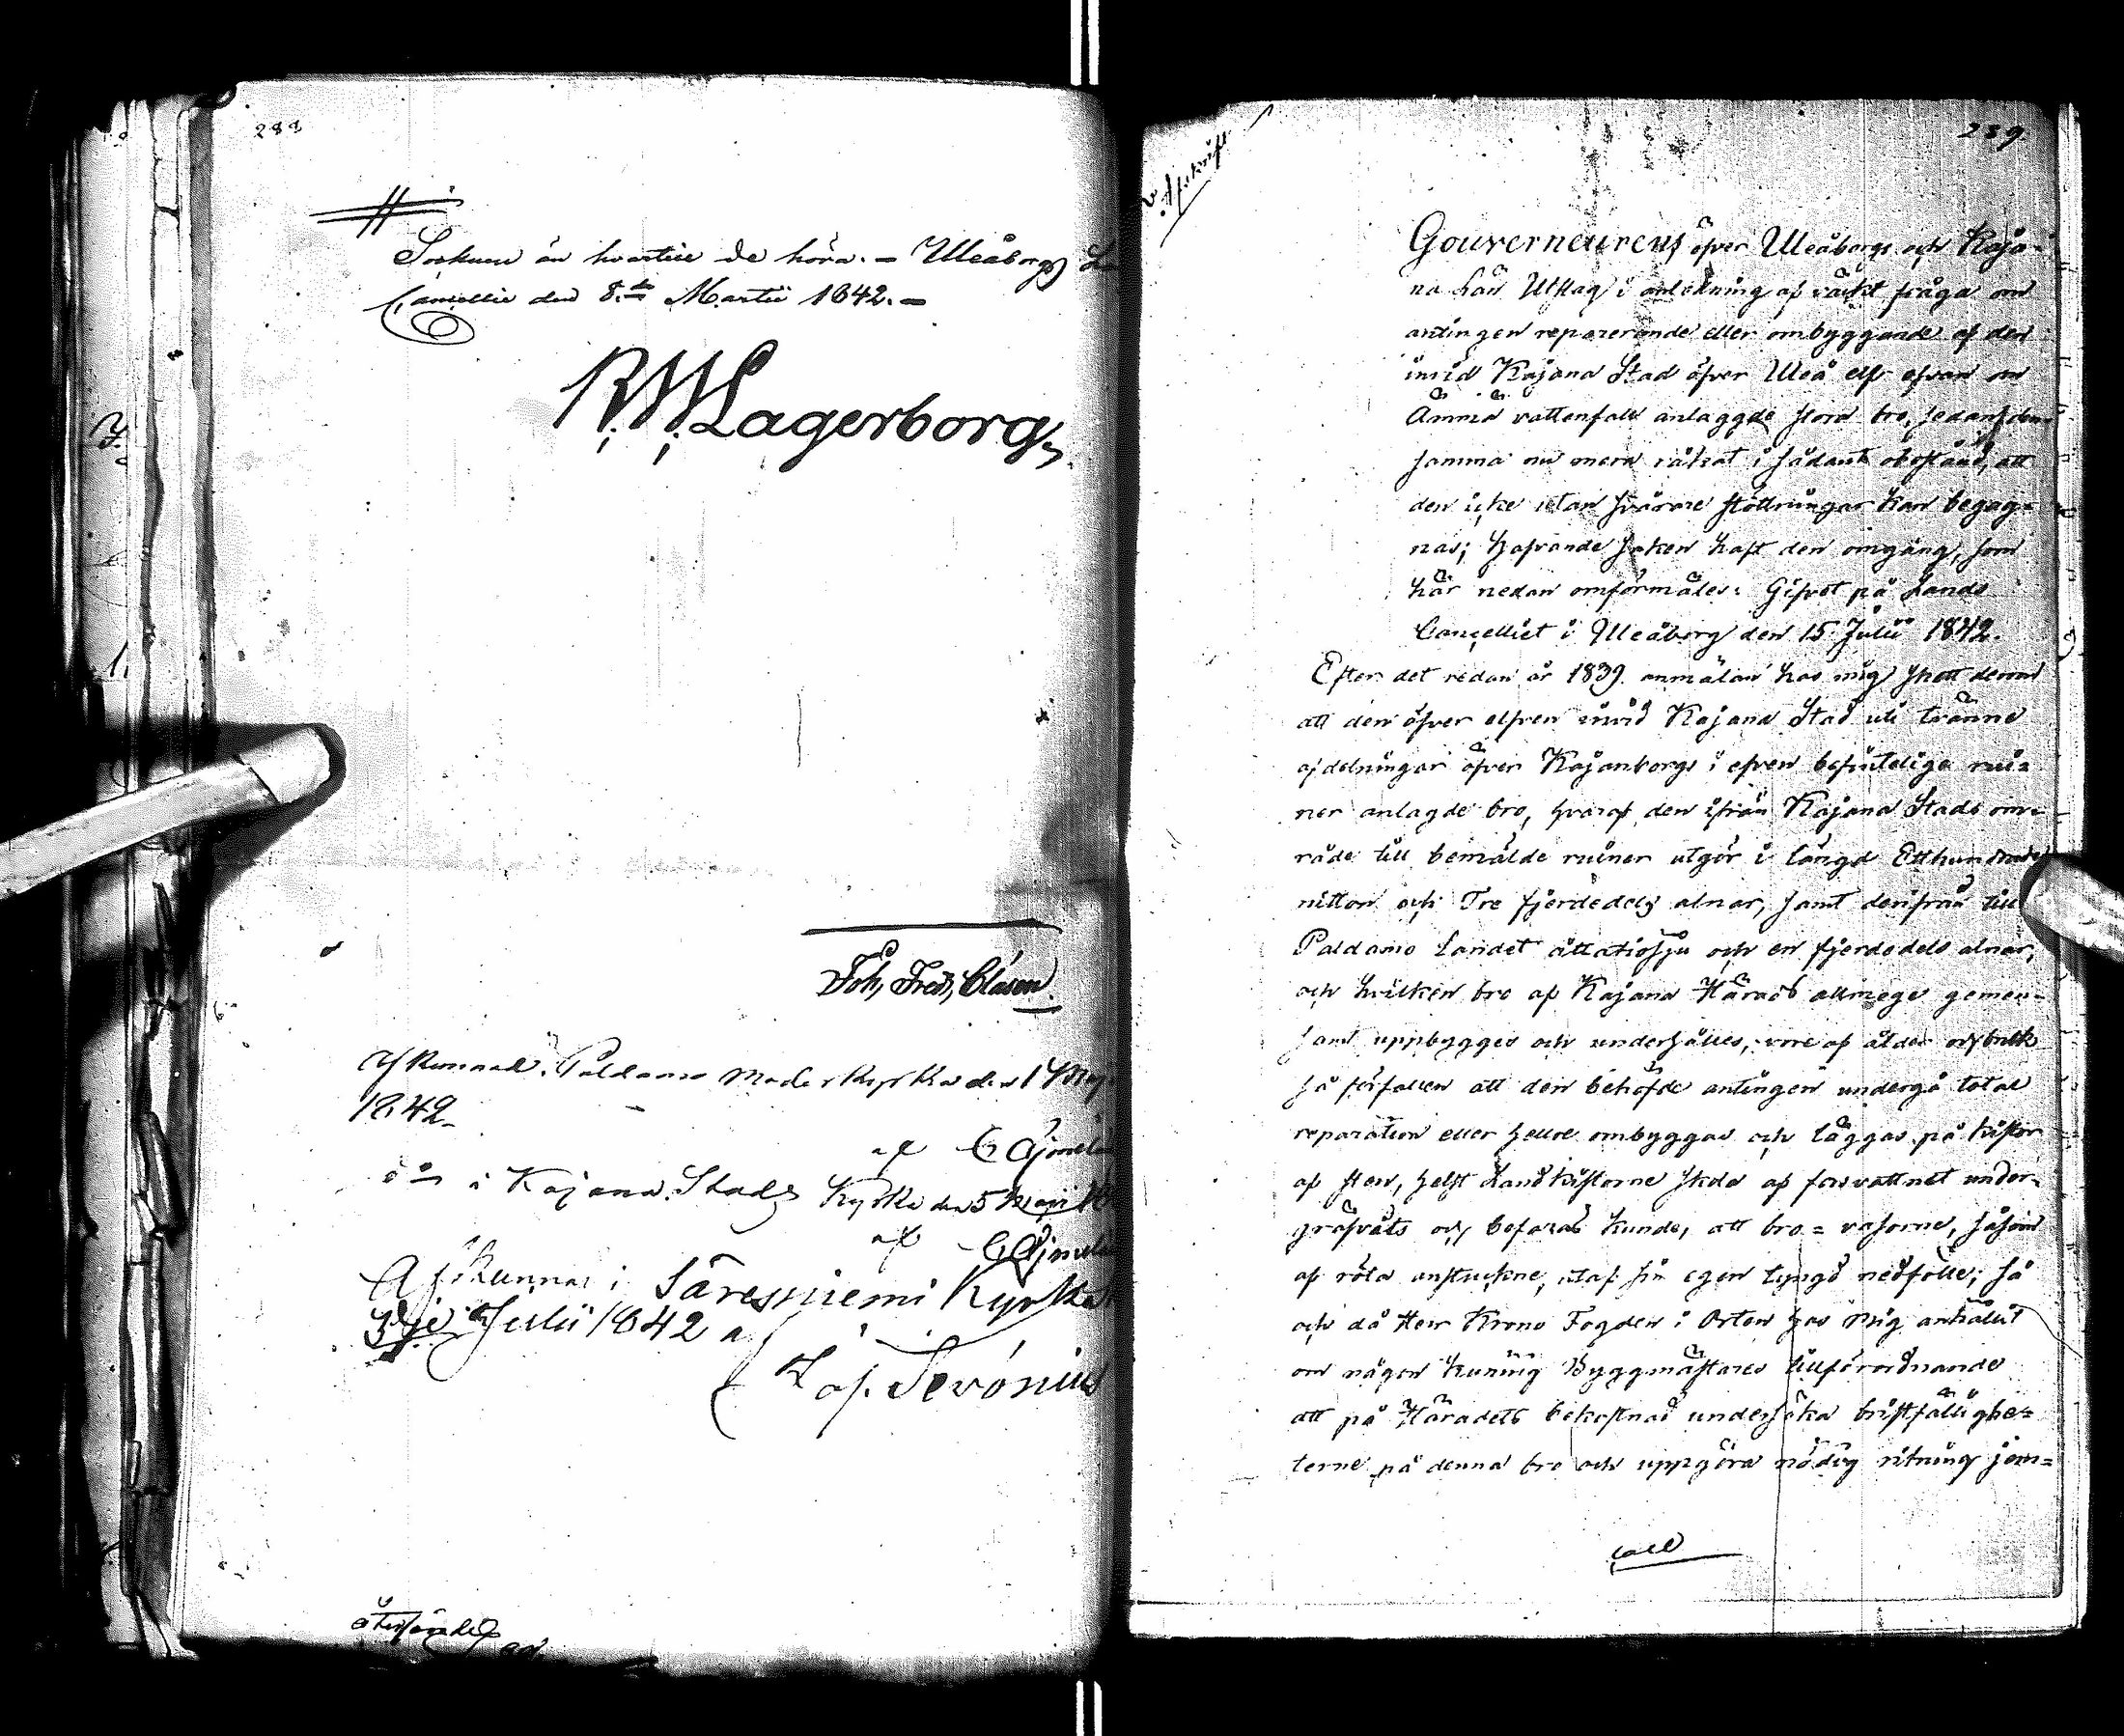 288
Socknen än hvartill de höra. — Uleåborgs
Cancellie den 8.de Martii 1842. —
R. W. Lagerborg
Joh, Fred, Clasen
Afkunnad i Paldamo Moderkyrka den 1 Maj
1842
af C Ajmelæ
d:o i Kajana Stads Kyrka den 5 Maji
af C Ajmelæ
Afkunnas i Säresniemi Kyrka
3dje Julii 1842 af
Zaf. Ferónius
återsändes
Afskrift
289
Gouverneurens öfver Uleåborgs och Kaja-
na Län Utslag i anledning af väckt fråga om
antingen reparerande eller ombyggande af den
invid Kajana Stad öfver Uleå elf ofvan om
Ämmä vattenfall anlaggde stora bro, sedan den-
samma nu mera råkat i sådant obestånd, att
den icke utan svårare stöttningar kan begag-
nas; hafvande saken haft den omgång, som
här nedan omförmäles: Gifvet på Lands
Cancelliet i Uleåborg den 15 Julii 1842.
Efter det redan år 1839 anmälan hos mig skett derom
att den öfver elfven invid Kajana Stad uti tvänne
afdelningar öfver Kajanborgs i elfven befinteliga rui-
ner anlagde bro, hvaraf den ifrån Kajana Stads om-
råde till bemälde ruiner utgör i längd Etthundrade
nitton och Tre fjerdedels alnar, samt derifrån till
Paldamo Landet åttatiosju och en fjerdedels alnar,
och hvilken bro af Kajana Härads allmoge gemen-
samt uppbygges och underhålles, vore af ålder och bruk
så förfallen att den behöfde antingen undergå total
reparation eller hellre ombyggas och läggas på kistor
af sten, helst Landkistorne skola af forsvattnet under-
gräfvats och befaras kunde, att bro-vasorne, såsom
af röta anstuckne, utaf sin egen tyngd nedfölle; så
och då Herr Krono Fogden i Orten hos mig anhållit
om någon kunnig Byggmästares tillförordnande
att på Häradets bekostnad undersöka bristfällighe-
terne på denna bro och uppgöra nödig ritning jem-